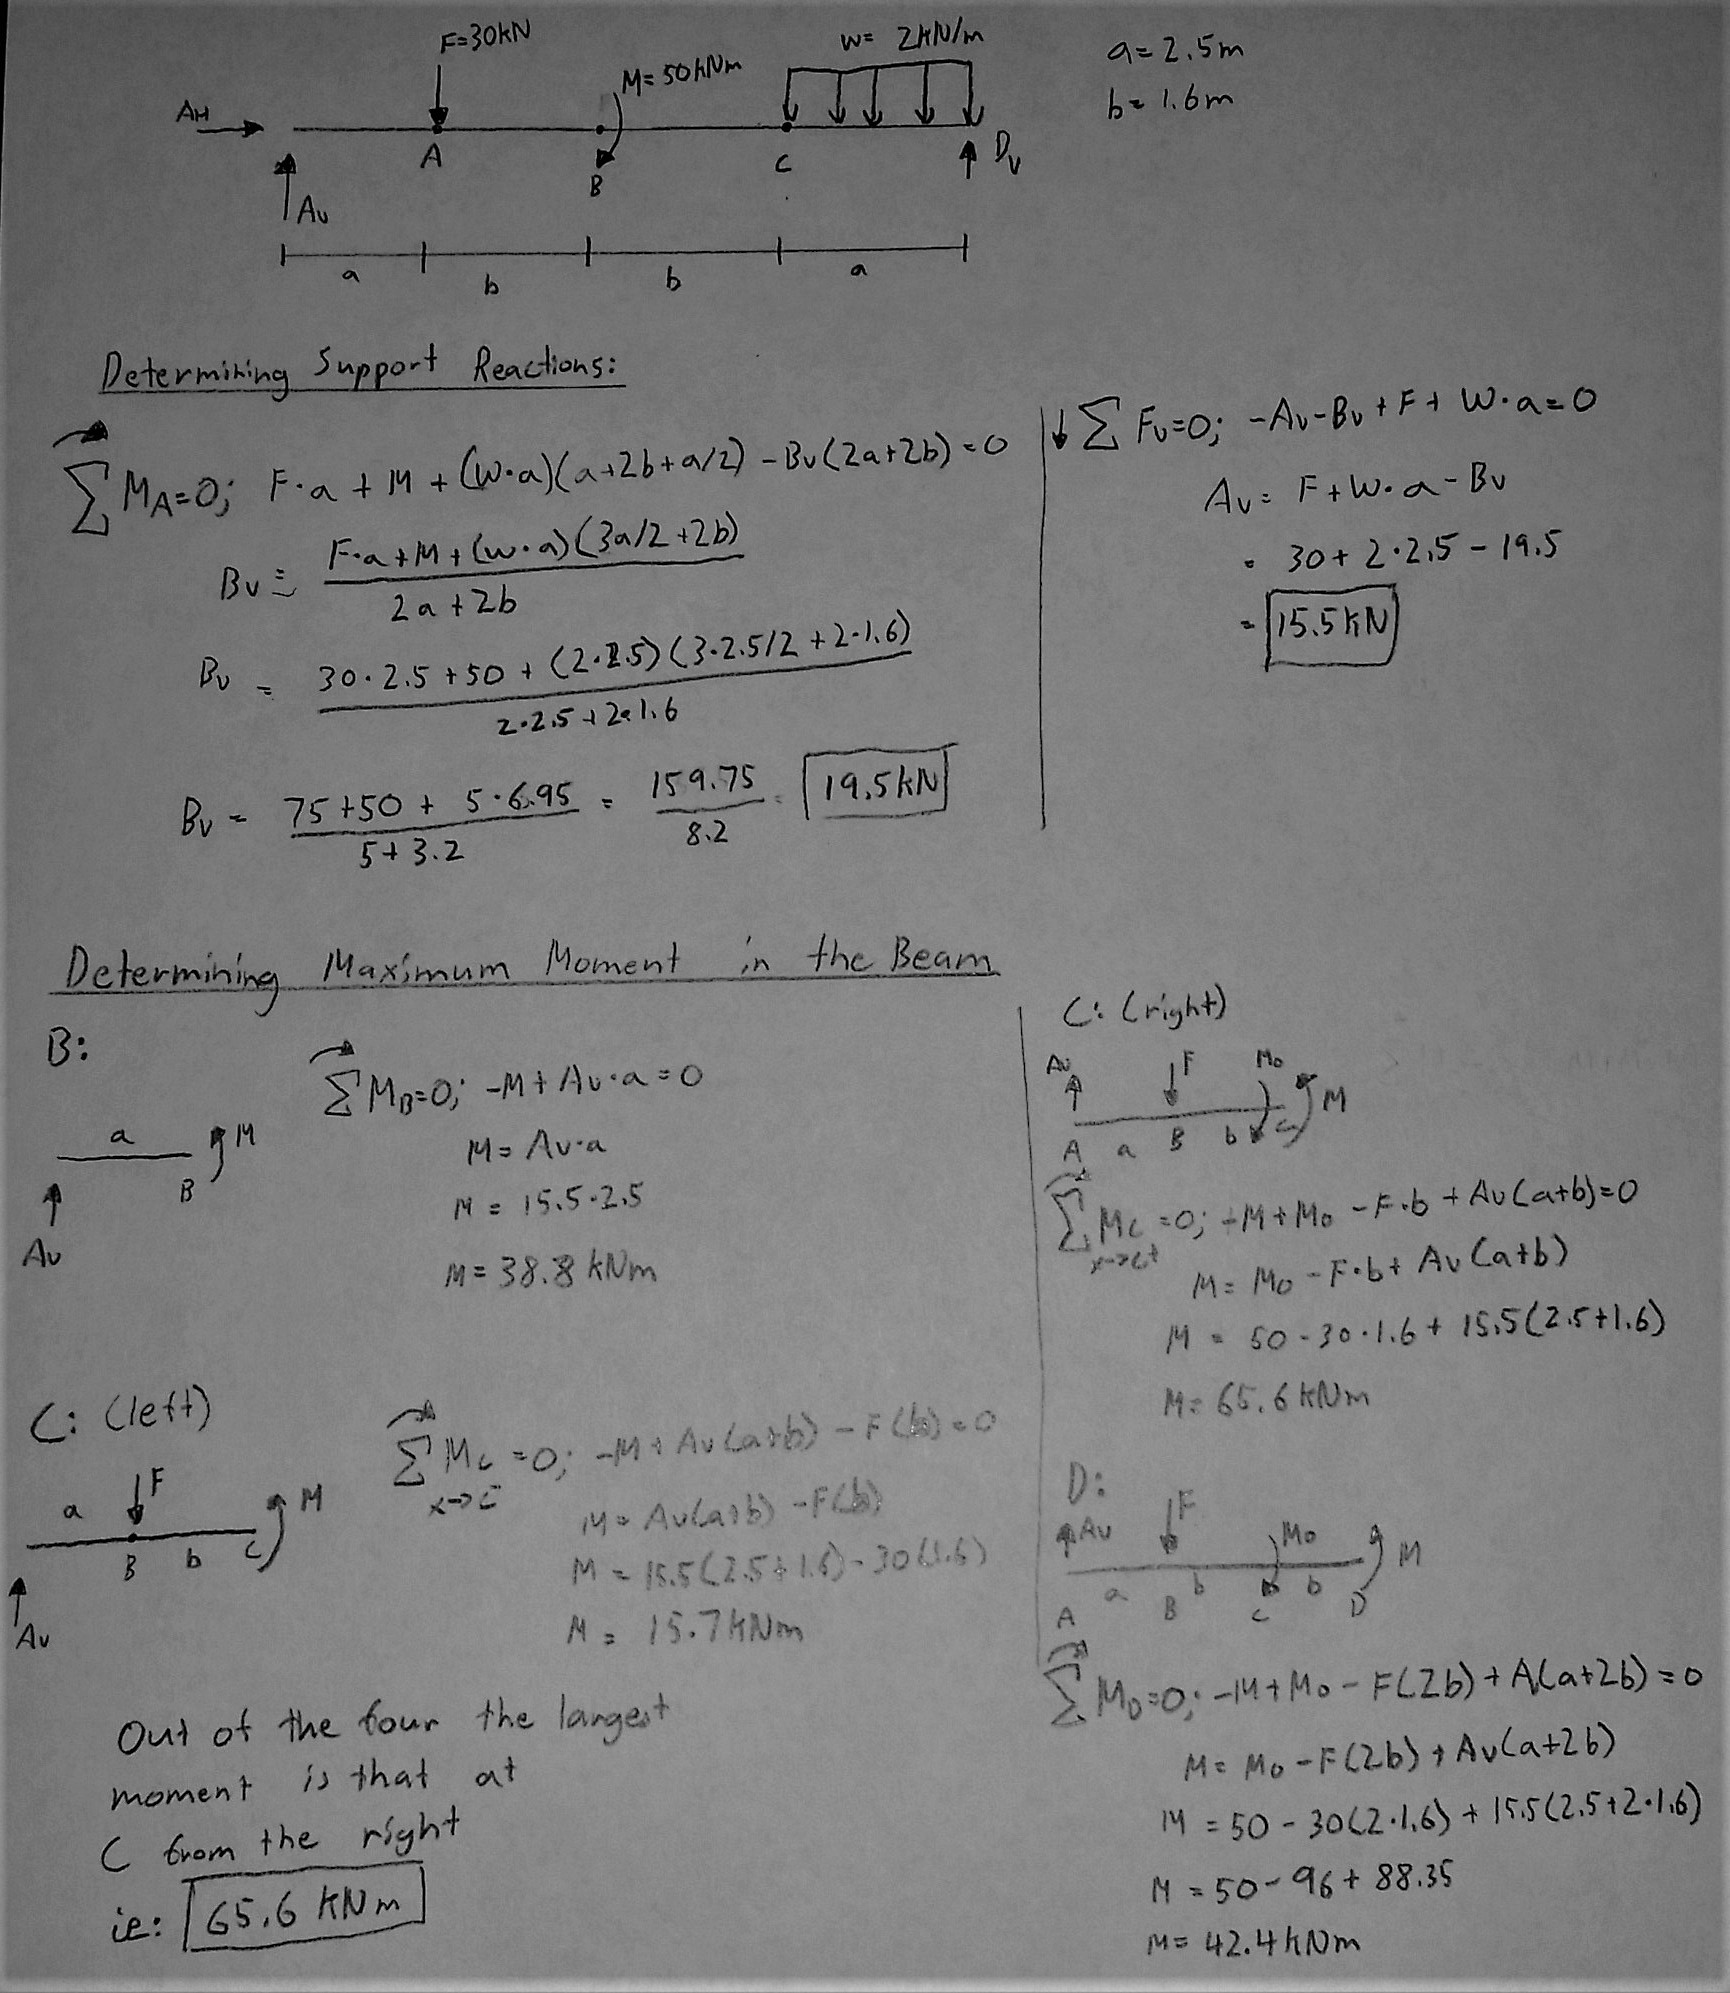 F=30kN
M=50kNm
w= 2kN/m
a=2.5m
b=1.6m
AH
A
B
C
Dv
Av
a
b
b
a
Determining Support Reactions:
∑ MA=0; F·a + M + (W·a)(a+2b+a/2) - Bv(2a+2b)=0
Bv = F·a+M+(w·a)(3a/2+2b)
2a+2b
Bv = 30·2.5+50+(2·2.5)(3·2.5/2+2·1.6)
2·2.5+2·1.6
Bv = 75+50+ 5·6.95 = 159.75 = 19.5kN
5+3.2
8.2
↓∑ Fv=0; -Av-Bv+F+W·a=0
Av= F+W·a-Bv
= 30+2·2.5-19.5
= 15.5kN
Determining Maximum Moment in the Beam
B:
a
M
B
Av
∑MB=0; -M+Av·a=0
M=Av·a
M=15.5·2.5
M=38.8 kNm
C: (left)
a
F
M
B
b
C
Av
∑Mc=0; -M+Av(a+b)-F(b)=0
x→c-
M=Av(a+b)-F(b)
M=15.5(2.5+1.6)-30(1.6)
M= 15.7kNm
Out of the four the largest
moment is that at
C from the right
ie: 65.6 KNm
C: (right)
Av
F
Mo
M
A
a
B
b
C
∑Mc=0; -M+Mo-F·b+Av(a+b)=0
x→c+
M=Mo-F·b+Av(a+b)
M=50-30·1.6+15.5(2.5+1.6)
M=65.6kNm
D:
Av
F
Mo
M
A
a
B
b
C
b
D
∑MD=0; -M+Mo-F(2b)+A(a+2b)=0
M=Mo-F(2b)+Av(a+2b)
M=50-30(2·1.6)+15.5(2.5+2·1.6)
M=50-96+88.35
M=42.4kNm